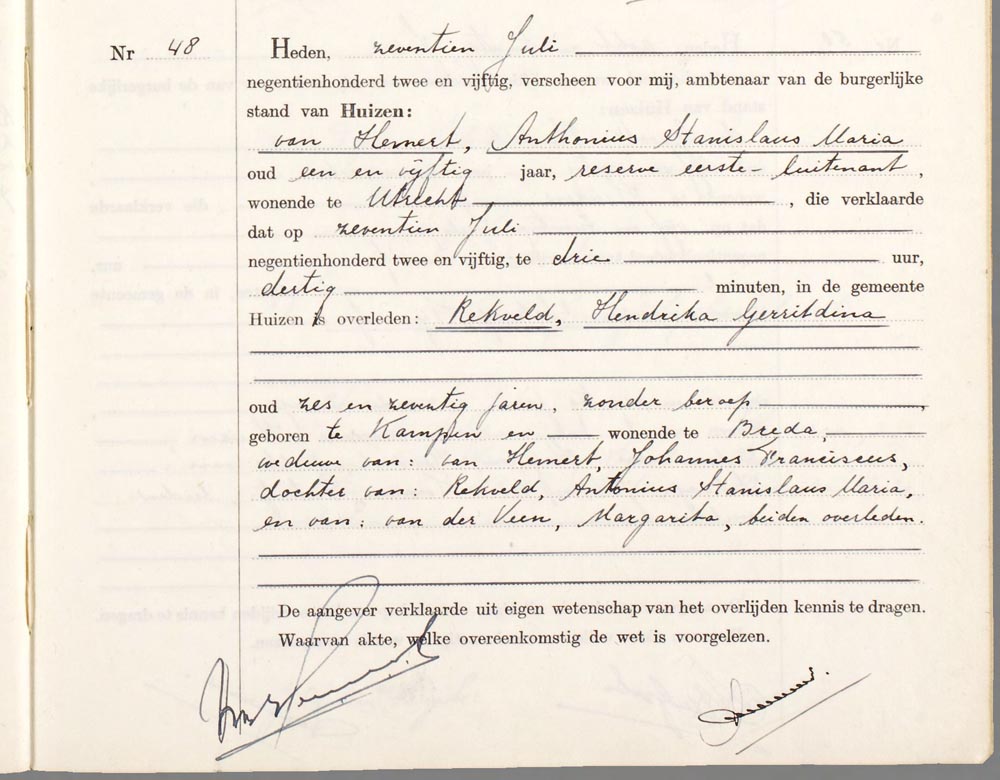 Nr 48 Heden, zeventien Juli
negentienhonderd twee en vijftig, verscheen voor mij, ambtenaar van de burgerlijke
stand van Huizen:
van Hemert, Anthonius Stanislaus Maria
oud een en vijftig jaar, reserve eerste-luitenant,
wonende te Utrecht, die verklaarde
dat op zeventien Juli
negentienhonderd twee en vijftig, te drie uur,
dertig minuten, in de gemeente
Huizen is overleden: Rekveld, Hendrika Gerritdina
oud zes en zeventig jaren, zonder beroep,
geboren te Kampen en wonende te Breda,
weduwe van: van Hemert, Johannes Franciscus,
dochter van: Rekveld, Antonius Stanislaus Maria,
en van: van der Veen, Margarita, beiden overleden.
De aangever verklaarde uit eigen wetenschap van het overlijden kennis te dragen.
Waarvan akte, welke overeenkomstig de wet is voorgelezen.